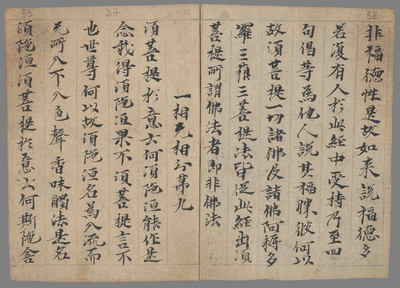 52
非福德性是故如来說福德多
若復有人於此經中受持乃至四
句偈等為他人說其福勝彼何以
故須菩提一切諸佛及諸佛阿耨多
羅三藐三菩提法皆從此經出須
菩提所謂佛法者即非佛法
一相无相分第九
27
須菩提於意云何須陁洹能作是
念我得須陁洹果不須菩提言不
也世尊何以故須陁洹名為入流而
无所入不入色聲香味觸法是名
須陁洹須菩提於意云何斯陁含
53